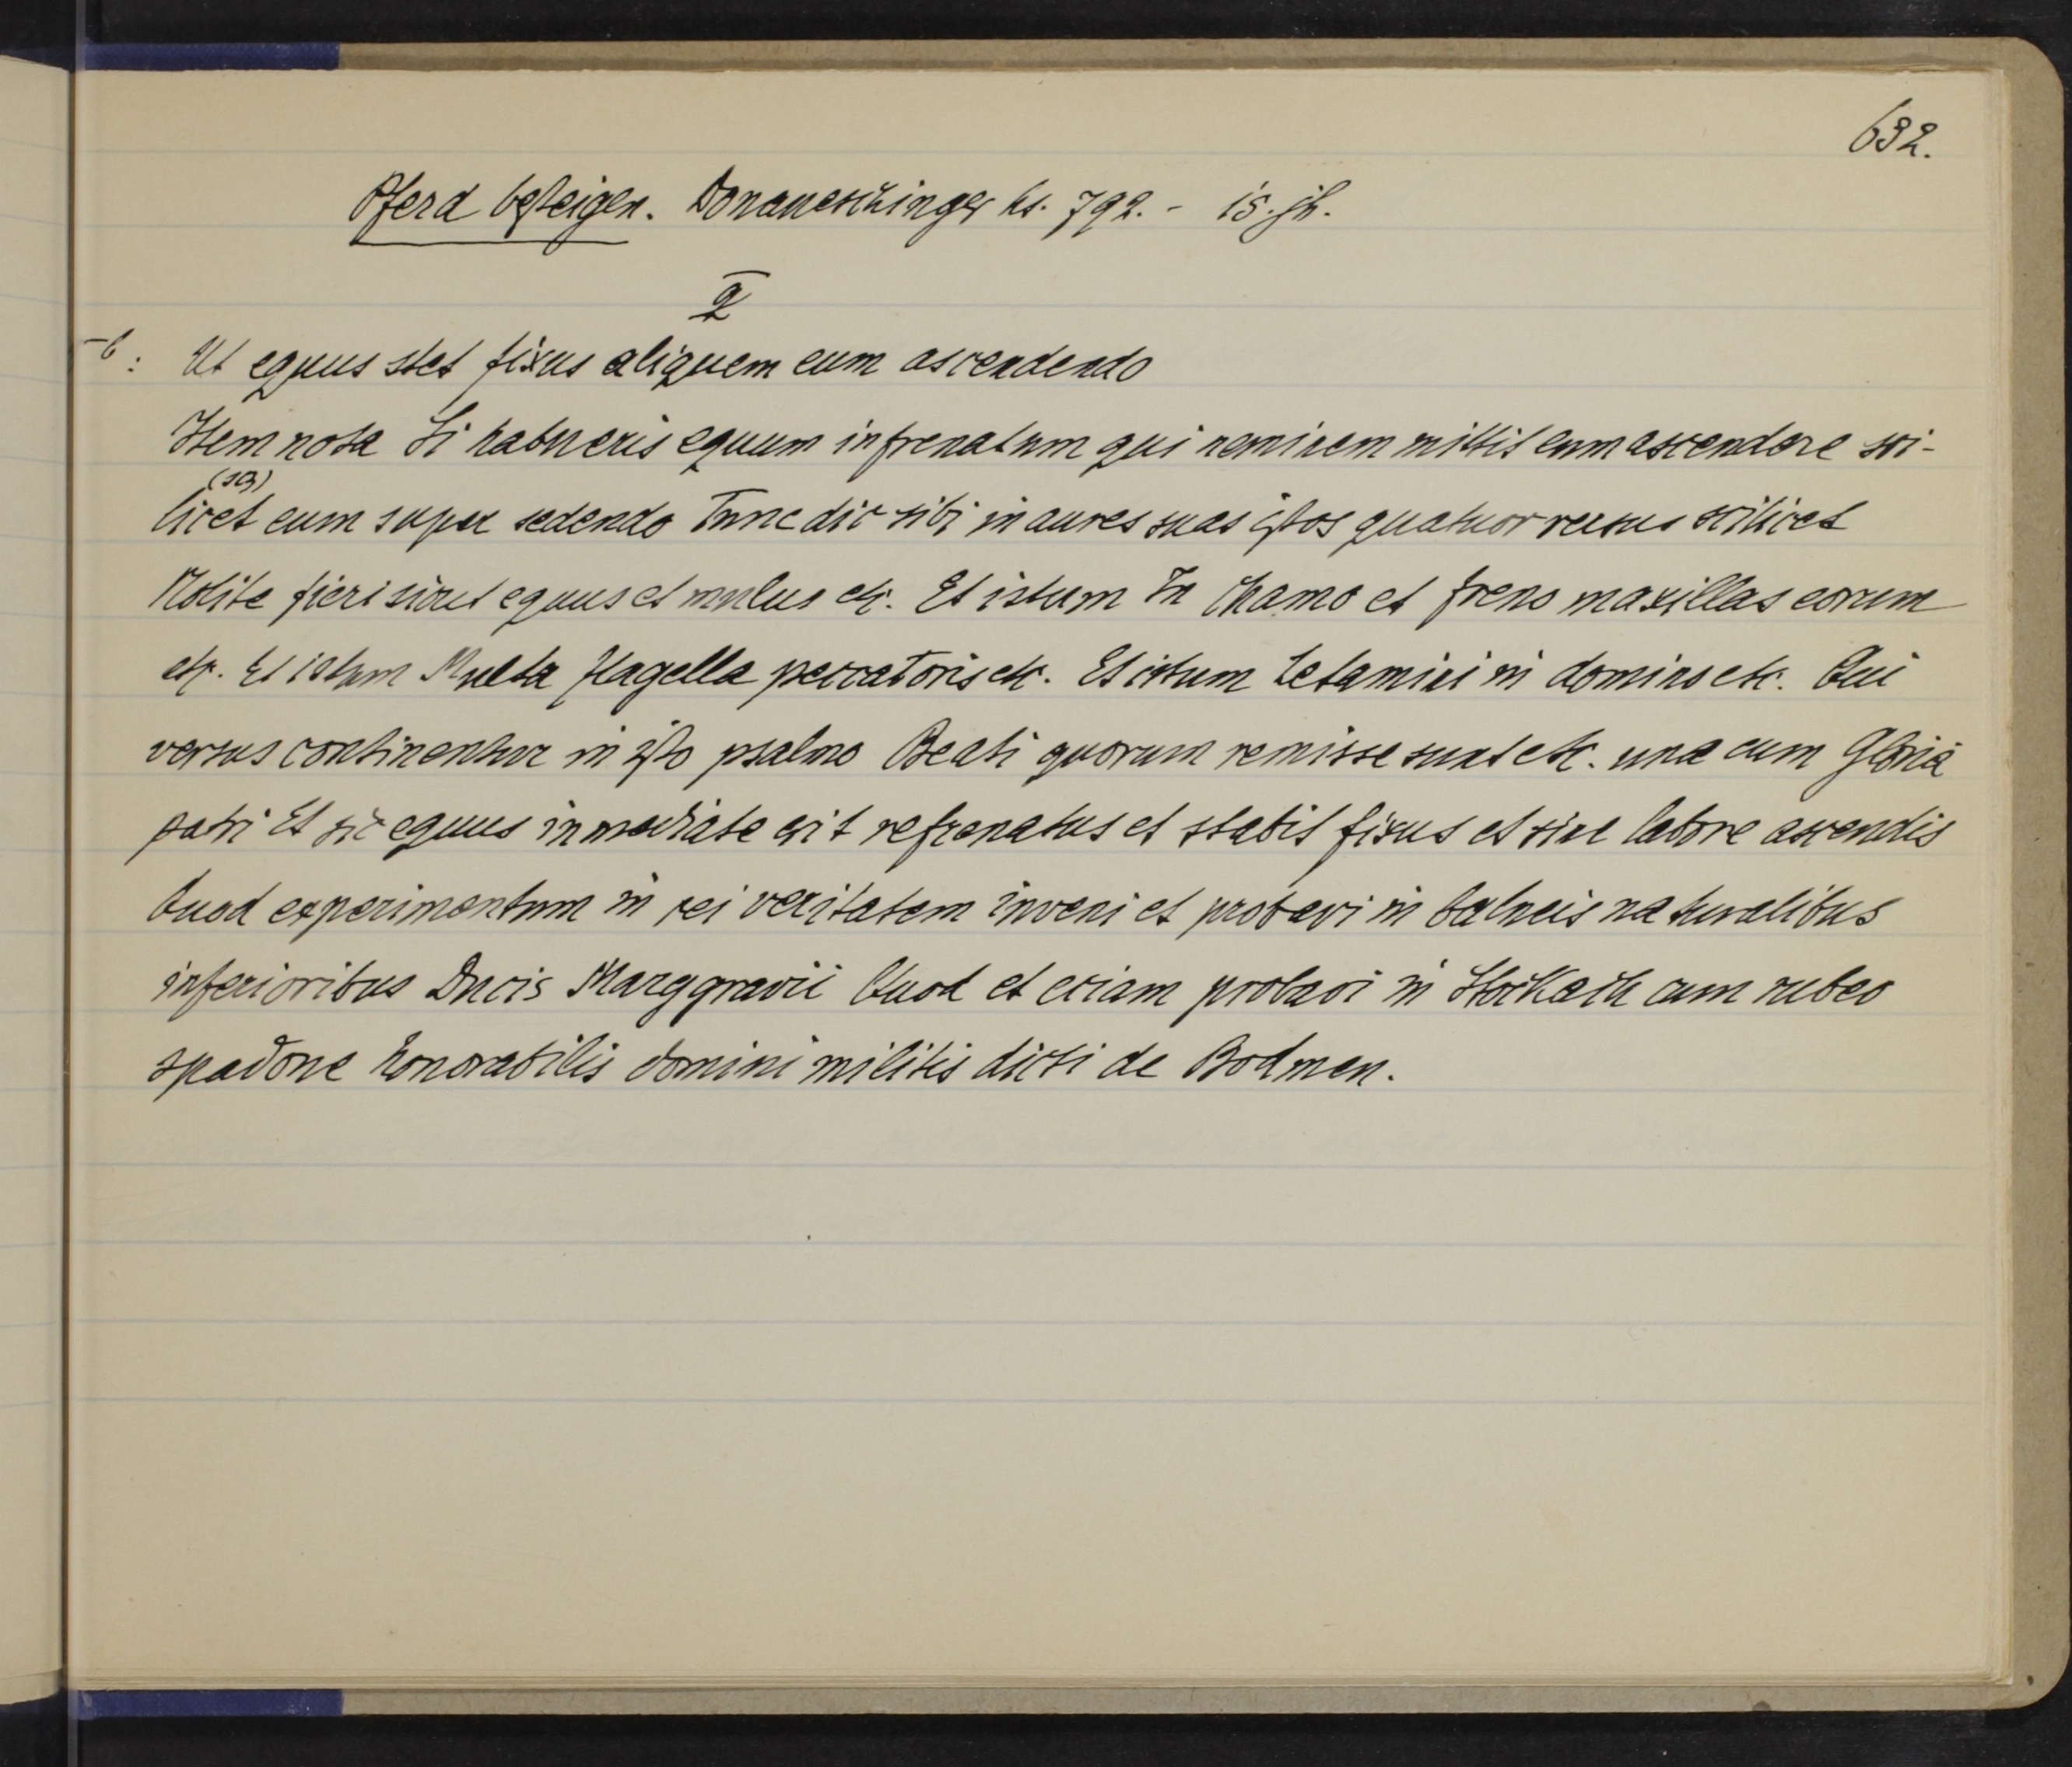 632.
Pferd besteigen. Donaueschinger hs. 792. - 15. jh.
2
b: Ut equus stet fixus aliquem eum ascendendo
Item nota Si habueris equum infrenatum qui neminem mittit eum ascendere sci-
licet eum super sedendo Tunc dic sibi in aures suas istos quatuor versus scilicet
Nolite fieri sicut equus et mulus etc. Et istum In chamo et freno maxillas eorum
etc. Et istum Multa flagella peccatoris etc. Et istum Letamini in domino etc. Qui
versus continentur in isto psalmo Beati quorum remisse sunt etc. una cum Gloria
patri Et sic equus inmediate erit refrenatus et stabit fixus et sine labore ascendis
Quod experimentum in rei veritatem inveni et probavi in balneis naturalibus
inferioribus Ducis Marggravii Quod et eciam probavi in Stockach cum rubeo
spadone honorabilis domini militis dicti de Bodmen.